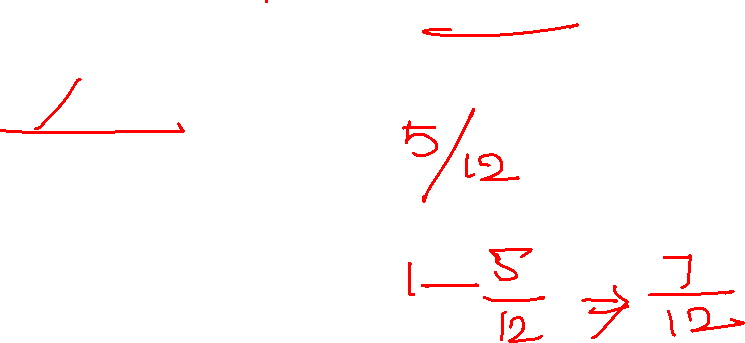 5/12
1 - 5/12 ⇒ 7/12